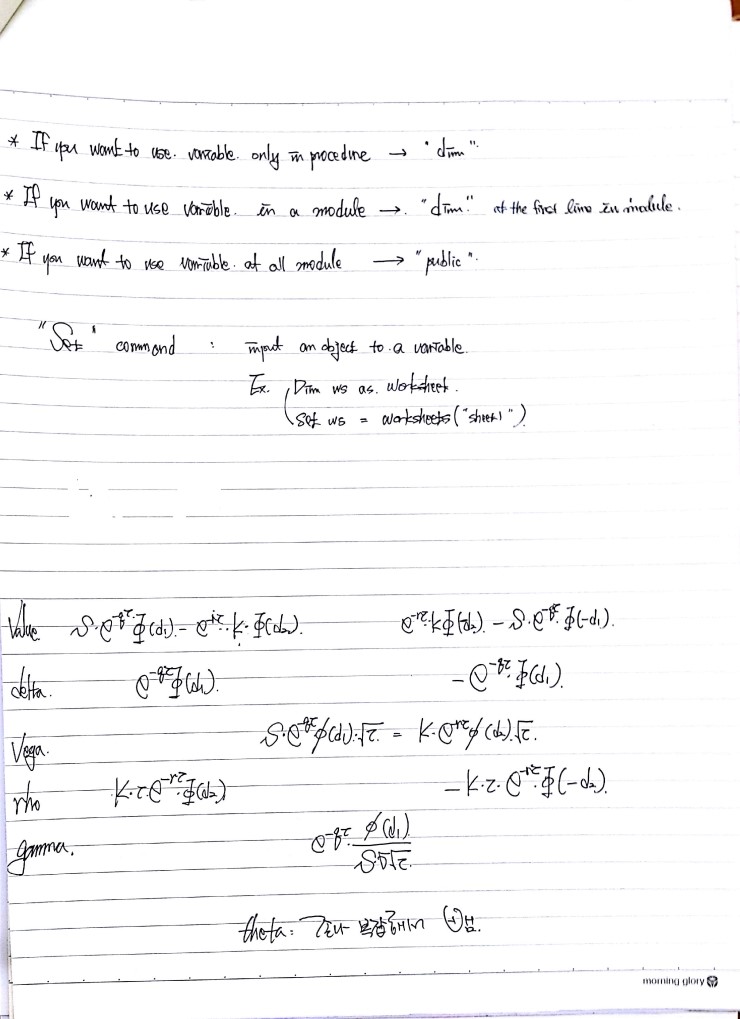 * If you want to use. variable. only in procedure → "dim".
* If you want to use variable. in a module →. "dim" at the first line in module.
* If you want to use variable. at all module → "public".
"Set" command : input an object to a variable.
Ex. Dim ws as. worksheet.
Set ws = worksheets("sheet1")
Value. S·e^-qτ·Φ(d₁) - e^-rτ·K·Φ(d₂). e^-rτ·KΦ(-d₂) - S·e^-qτ·Φ(-d₁).
delta. e^-qτ·Φ(d₁). - e^-qτ·Φ(d₁).
Vega. S·e^-qτ φ(d₁)·√τ. = K·e^-rτ φ(d₂)·√τ.
rho K·τ·e^-rτ·Φ(d₂) -K·τ·e^-rτ·Φ(-d₂).
gamma. e^-qτ· φ(d₁) / Sσ√τ.
theta: 복잡해서
morning glory